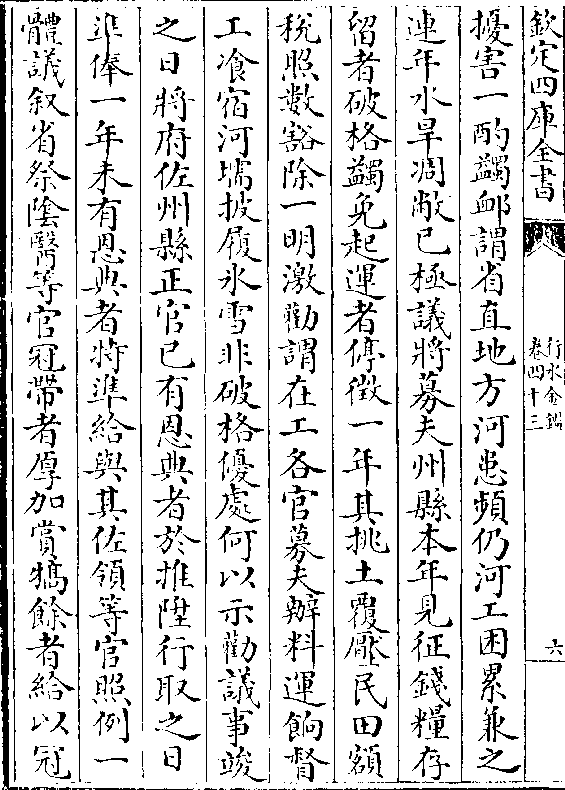 欽定四庫全書
行水金鑑
卷四十三
六
擾害一酌蠲䘏謂省直地方河患頻仍河工困累兼之
連年水旱凋敝已極議將募夫州縣本年見征錢糧存
留者破格蠲免起運者停徴一年其挑土覆壓民田額
稅照數豁除一明激勸謂在工各官募夫辦料運餉督
工飡宿河壖披履氷雪非破格優處何以示勸議事竣
之日將府佐州縣正官已有恩典者於推陞行取之日
準俸一年未有恩典者將準給與其佐領等官照例一
體議叙省祭陰醫等官冠帶者厚加賞犒餘者給以冠